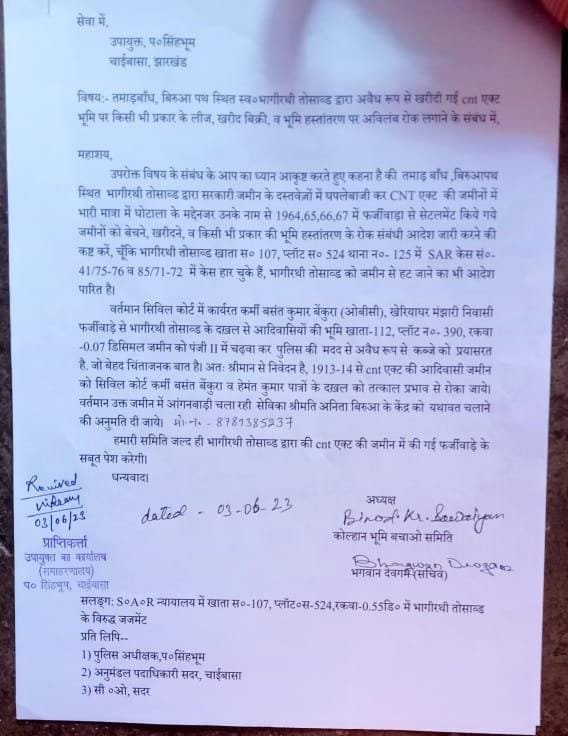 सेवा में,
उपायुक्त, प०सिंहभूम
चाईबासा, झारखंड
विषय:- तमाड़बाँध, बिरुआ पथ स्थित स्व०भागीरथी तोसाव्ड द्वारा अवैध रूप से खरीदी गई cnt एक्ट
भूमि पर किसी भी प्रकार के लीज, खरीद बिक्री, व भूमि हस्तांतरण पर अविलंब रोक लगाने के संबंध में,
महाशय,
उपरोक्त विषय के संबंध के आप का ध्यान आकृष्ट करते हुए कहना है की तमाड़ बाँध ,बिरुआपथ
स्थित भागीरथी तोसाव्ड द्वारा सरकारी जमीन के दस्तवेज़ों में घपलेबाजी कर CNT एक्ट की जमीनों में
भारी मात्रा में घोटाला के मद्देनजर उनके नाम से 1964,65,66,67 में फर्जीवाड़ा से सेटलमेंट किये गये
जमीनों को बेचने, खरीदने, व किसी भी प्रकार की भूमि हस्तांतरण के रोक संबंधी आदेश जारी करने की
कष्ट करें, चूँकि भागीरथी तोसाव्ड खाता स० 107, प्लॉट स० 524 थाना न०- 125 में SAR केस सं०-
41/75-76 व 85/71-72 में केस हार चुके हैं, भागीरथी तोसाव्ड को जमीन से हट जाने का भी आदेश
पारित है।
वर्तमान सिविल कोर्ट में कार्यरत कर्मी बसंत कुमार बेंकुरा (ओबीसी), खेरियाघर मंझारी निवासी
फर्जीवाड़े से भागीरथी तोसाव्ड के दखल से आदिवासियों की भूमि खाता-112, प्लॉट न०- 390, रकवा
-0.07 डिसिमल जमीन को पंजी II में चढ़वा कर पुलिस की मदद से अवैध रूप से कब्जे को प्रयासरत
है. जो बेहद चिंताजनक बात है। अतः श्रीमान से निवेदन है, 1913-14 से cnt एक्ट की आदिवासी जमीन
को सिविल कोर्ट कर्मी बसंत बेंकुरा व हेमंत कुमार पात्रों के दखल को तत्काल प्रभाव से रोका जाये।
वर्तमान उक्त जमीन में आंगनबाड़ी चला रही सेविका श्रीमति अनिता बिरुआ के केंद्र को यथावत चलाने
की अनुमति दी जाये। मो.न. - 8787385237
हमारी समिति जल्द ही भागीरथी तोसाव्ड द्वारा की cnt एक्ट की जमीन में की गई फर्जीवाड़े के
सबूत पेश करेगी।
धन्यवाद।
Received
03/06/23
dated - 03-06-23
अध्यक्ष
Binod Kr. Sawaiyan
कोल्हान भूमि बचाओ समिति
प्राप्तिकर्त्ता
उपायुक्त का कार्यालय
(समाहरणालय)
प० सिंहभूम, चाईबासा
Bhagwan Deogam
भगवान देवगम(सचिव)
सलङ्ग: S०A०R न्यायालय में खाता स०-107, प्लॉट०स-524,रकवा-0.55डि० में भागीरथी तोसाव्ड
के विरुद्ध जजमेंट
प्रति लिपि--
1) पुलिस अधीक्षक,प०सिंहभूम
2) अनुमंडल पदाधिकारी सदर, चाईबासा
3) सी ०ओ, सदर